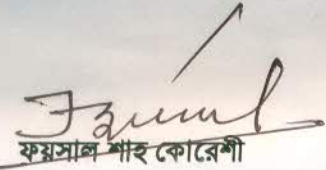 ফয়সাল শাহ কোরেশী